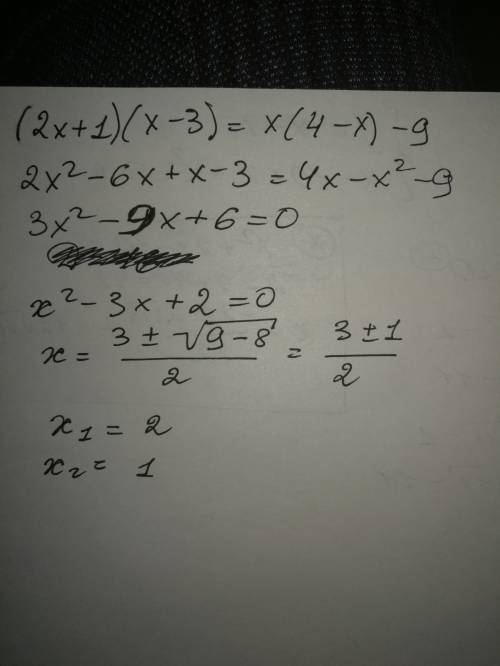 (2x+1)(x-3) = x(4-x) -9
2x² - 6x + x - 3 = 4x - x² - 9
3x² - 9x + 6 = 0
x² - 3x + 2 = 0
x = (3 ± √(9-8))/2 = (3 ± 1)/2
x₁ = 2
x₂ = 1